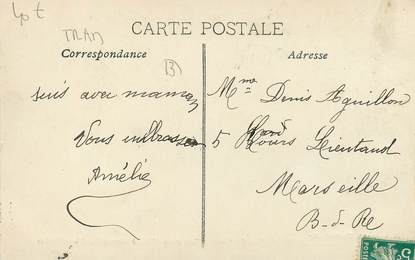 40 t
TRAM
CARTE POSTALE
Correspondance
Adresse
(B)
suis avec maman
Vous embrasse
Amélie
Mme Denis Aguillon
5 Cours Lieutaud
Marseille
B-d-Re